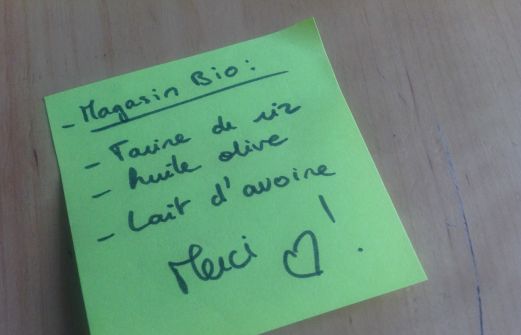 - Magasin Bio :
- Farine de riz
- huile olive
- Lait d'avoine
Merci ♡ !